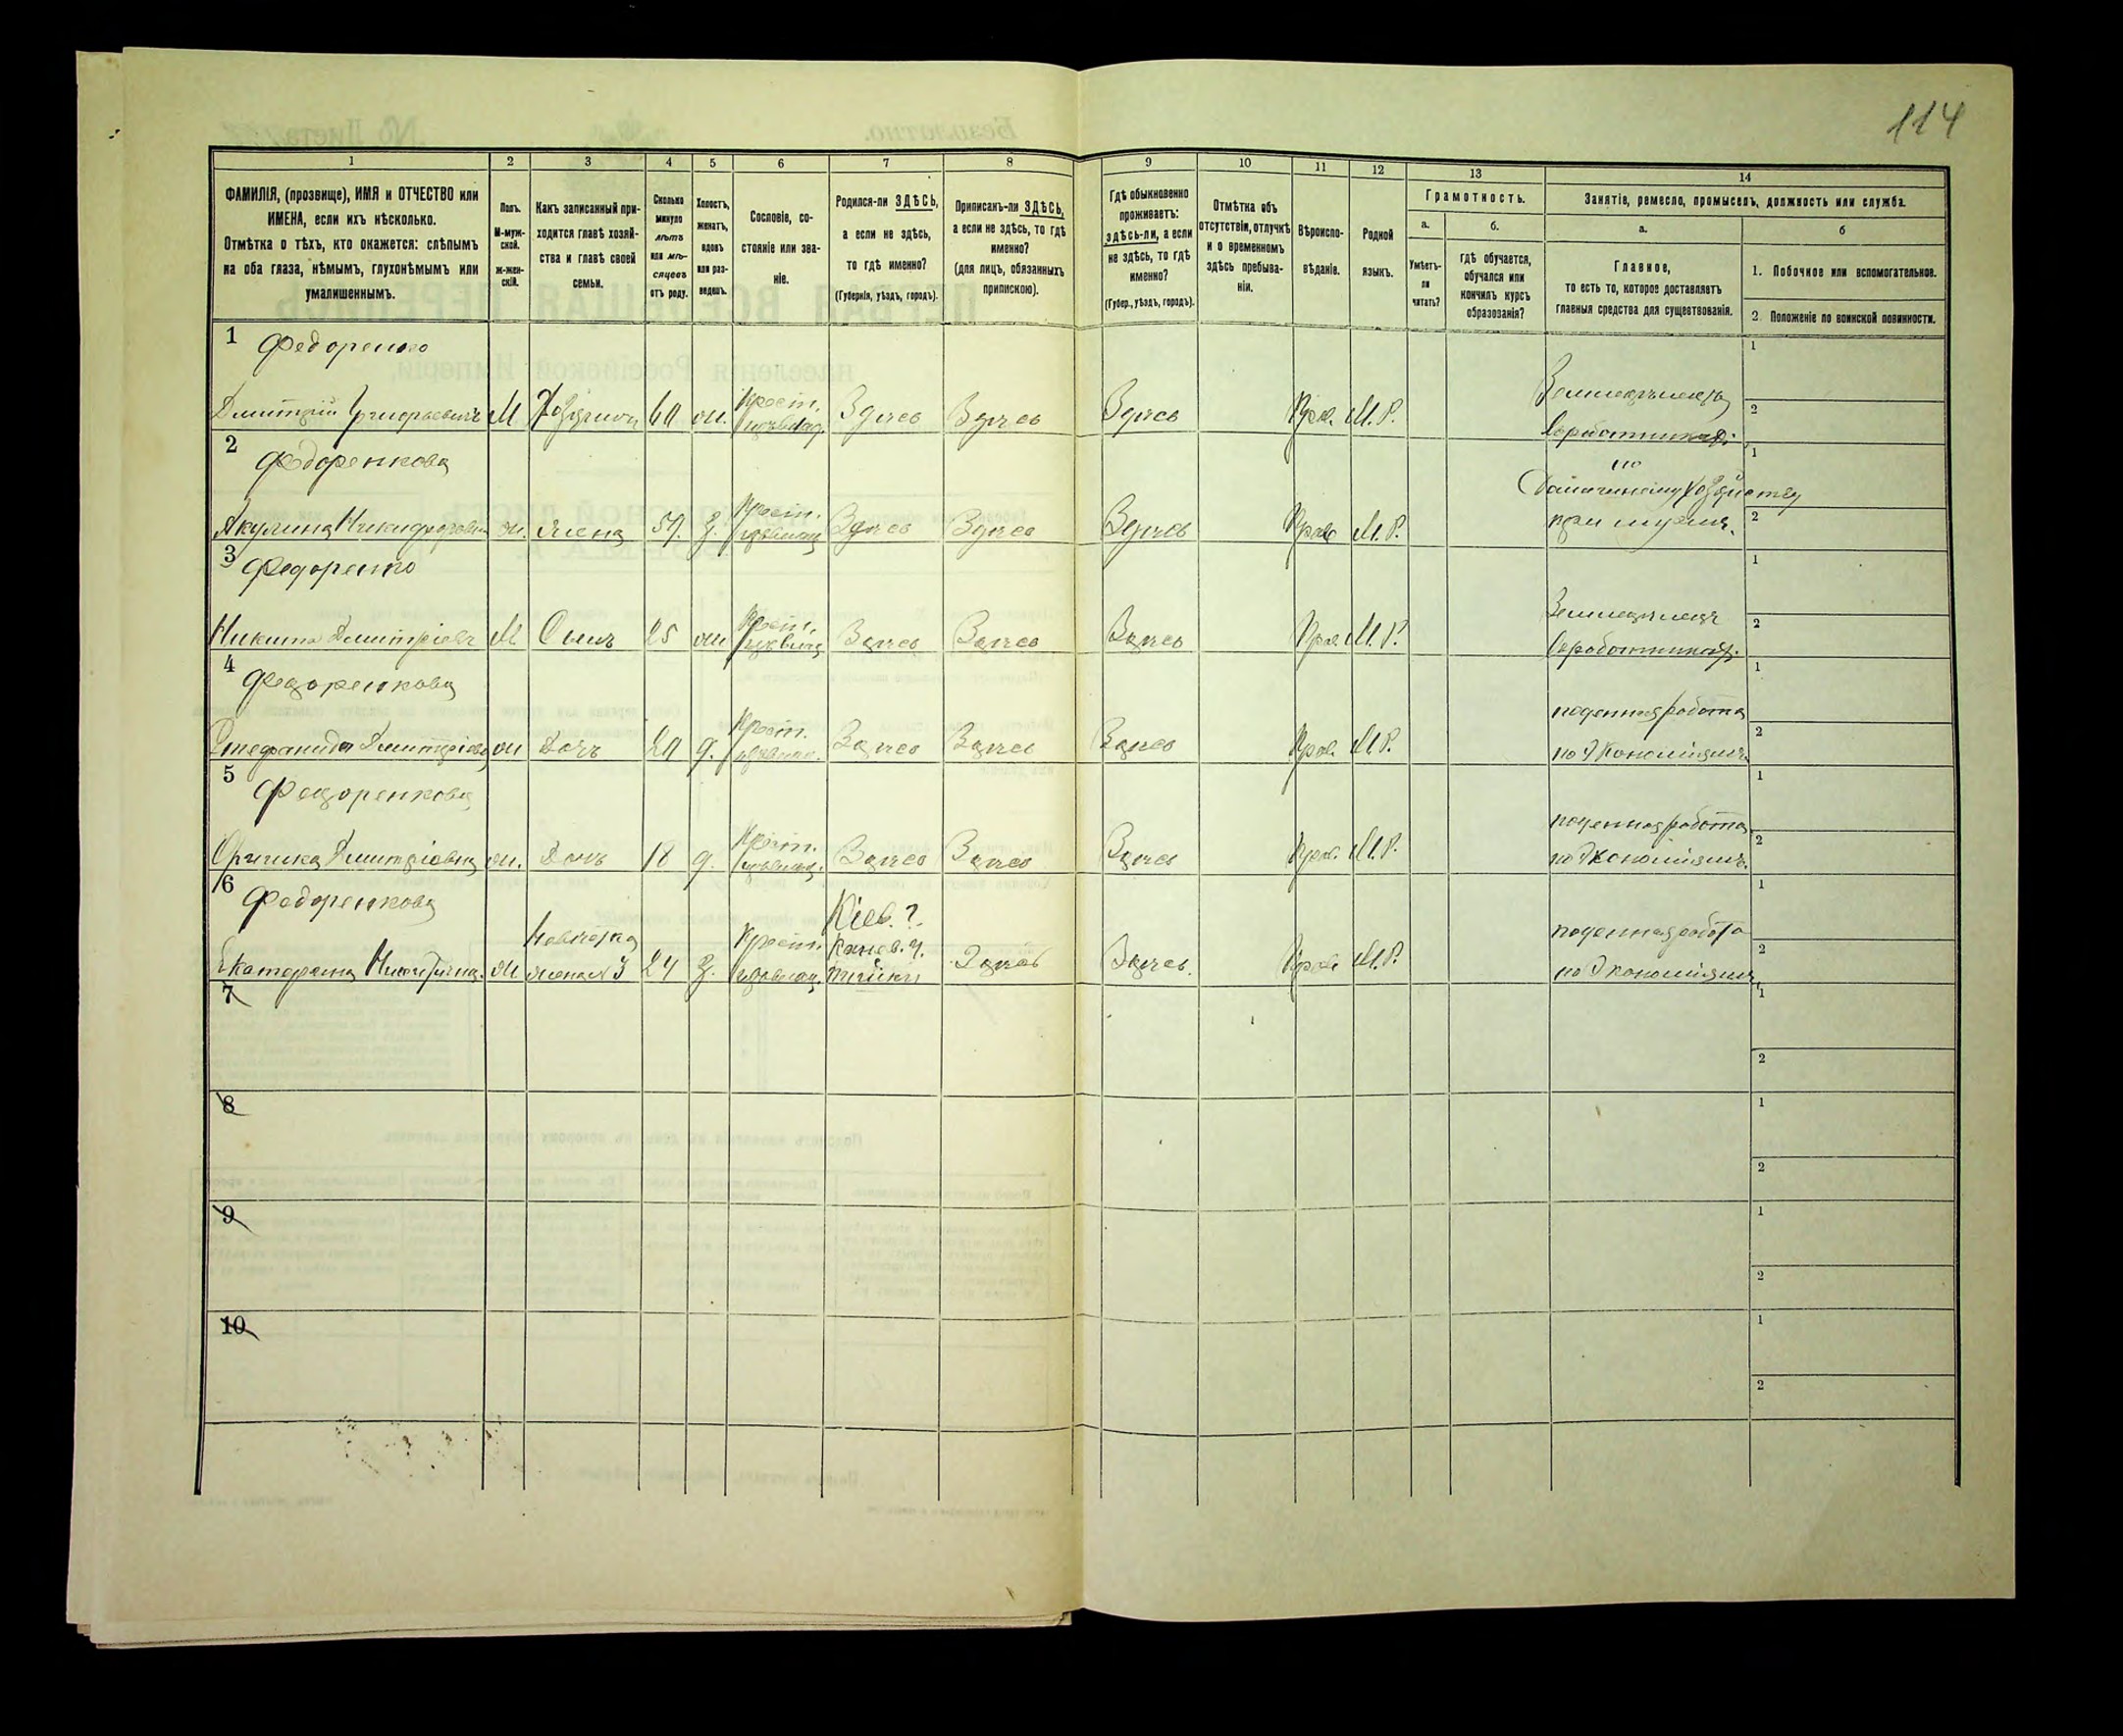 114
1 2 3 4 5 6 7 8 9 10 11 12 13 14
ФАМИЛІЯ, (прозвище), ИМЯ и ОТЧЕСТВО или
ИМЕНА, если ихъ нѣсколько.
Отмѣтка о тѣхъ, кто окажется: слѣпымъ
на оба глаза, нѣмымъ, глухонѣмымъ или
умалишеннымъ.
Полъ.
М-муж-
ской.
ж-жен-
скій.
Какъ записанный при-
ходится главѣ хозяй-
ства и главѣ своей
семьи.
Сколько
минуло
лѣтъ
или мѣ-
сяцевъ
отъ роду.
Холостъ,
женатъ,
вдовъ
или раз-
веденъ.
Сословіе, со-
стояніе или зва-
ніе.
Родился-ли ЗДѢСЬ,
а если не здѣсь,
то гдѣ именно?
(Губернія, уѣздъ, городъ).
Приписанъ-ли ЗДѢСЬ,
а если не здѣсь, то гдѣ
именно?
(для лицъ, обязанныхъ
припискою).
Гдѣ обыкновенно
проживаетъ:
здѣсь-ли, а если
не здѣсь, то гдѣ
именно?
(Губер., уѣздъ, городъ).
Отмѣтка объ
отсутствіи, отлучкѣ
и о временномъ
здѣсь пребыва-
ніи.
Вѣроиспо-
вѣданіе.
Родной
языкъ.
Грамотность.
а.
Умѣетъ-
ли
читать?
б.
гдѣ обучается,
обучался или
кончилъ курсъ
образованія?
Занятіе, ремесло, промыселъ, должность или служба.
а.
Главное,
то есть то, которое доставляетъ
главныя средства для существованія.
б
1. Побочное или вспомогательное.
2. Положеніе по воинской повинности.
1 Федоренко
Дмитрій Григорьевичъ М Хозяинъ 60 ж. Крест. Здѣсь Здѣсь Здѣсь Прав. М.Р. Земледѣлецъ
2 Федоренкова
Акулина Никифоровна ж. жена З. Крест. Здѣсь Здѣсь Здѣсь Прав М.Р. по
домашнему хозяйству
при мужѣ.
3 Федоренко
Никита Дмитріевъ М Сынъ 25 ж Крест. Здѣсь Здѣсь Здѣсь Прав М.Р. Земледѣлецъ
4 Федоренкова
Стефанида Дмитріевна ж Дочь 20 д. Крест. Здѣсь Здѣсь Здѣсь Прав. М.Р. поденная работа
по Экономіямъ.
5 Федоренкова
Дмитріевна ж. Дочь 18 д. Крест. Здѣсь Здѣсь Здѣсь Прав. М.Р. поденная работа
по Экономіямъ.
6 Федоренкова
Екатерина ж Невѣстка
жена 3 24 З. Крест. Кіев. г.
Канев. у. Здѣсь Здѣсь. Прав М.Р. поденная работа
по Экономіямъ
7
8
9
10